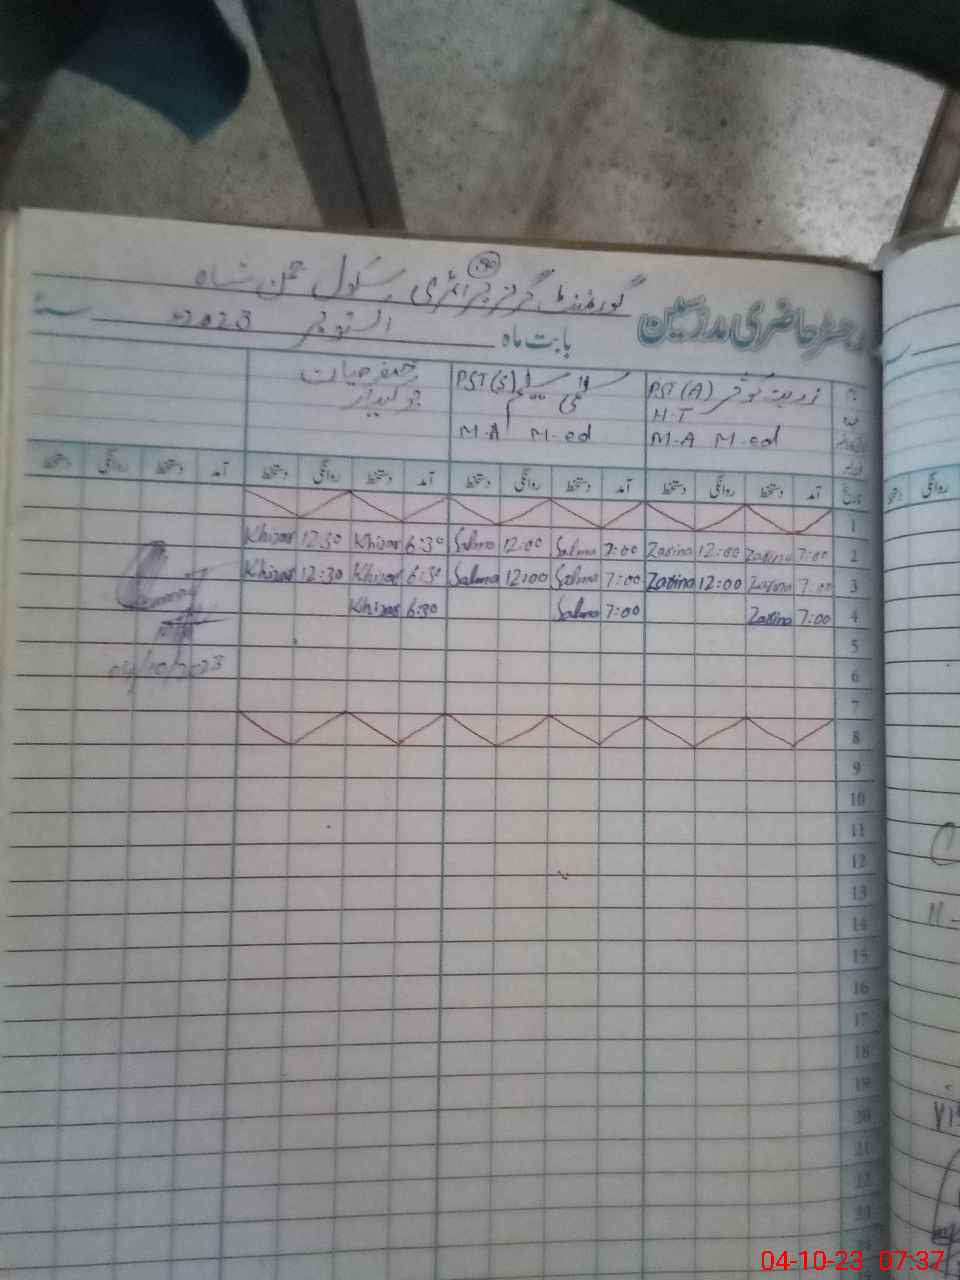 گورنمنٹ گرلز پرائمری سکول چمن شاہ
رجسٹر حاضری مدرسین
بابت ماہ اکتوبر 2023 سنہ
زرینہ کوثر PST (A)
H.T
M.A M.ed
PST (S)
M.A M.ed
خضر حیات
چوکیدار
تاریخ آمد دستخط روانگی دستخط آمد دستخط روانگی دستخط آمد دستخط روانگی دستخط آمد دستخط روانگی دستخط
1
Khizar 12:30 Khizar 6:30 Salma 12:00 Salma 7:00 Zarina 12:00 Zarina 7:00 2
Khizar 12:30 Khizar 6:30 Salma 12:00 Salma 7:00 Zarina 12:00 Zarina 7:00 3
Khizar 6:30 Salma 7:00 Zarina 7:00 4
5
04/10/2023 6
7
8
9
10
11
12
13
14
15
16
17
18
19
20
21
22
روانگی
04-10-23 07:37